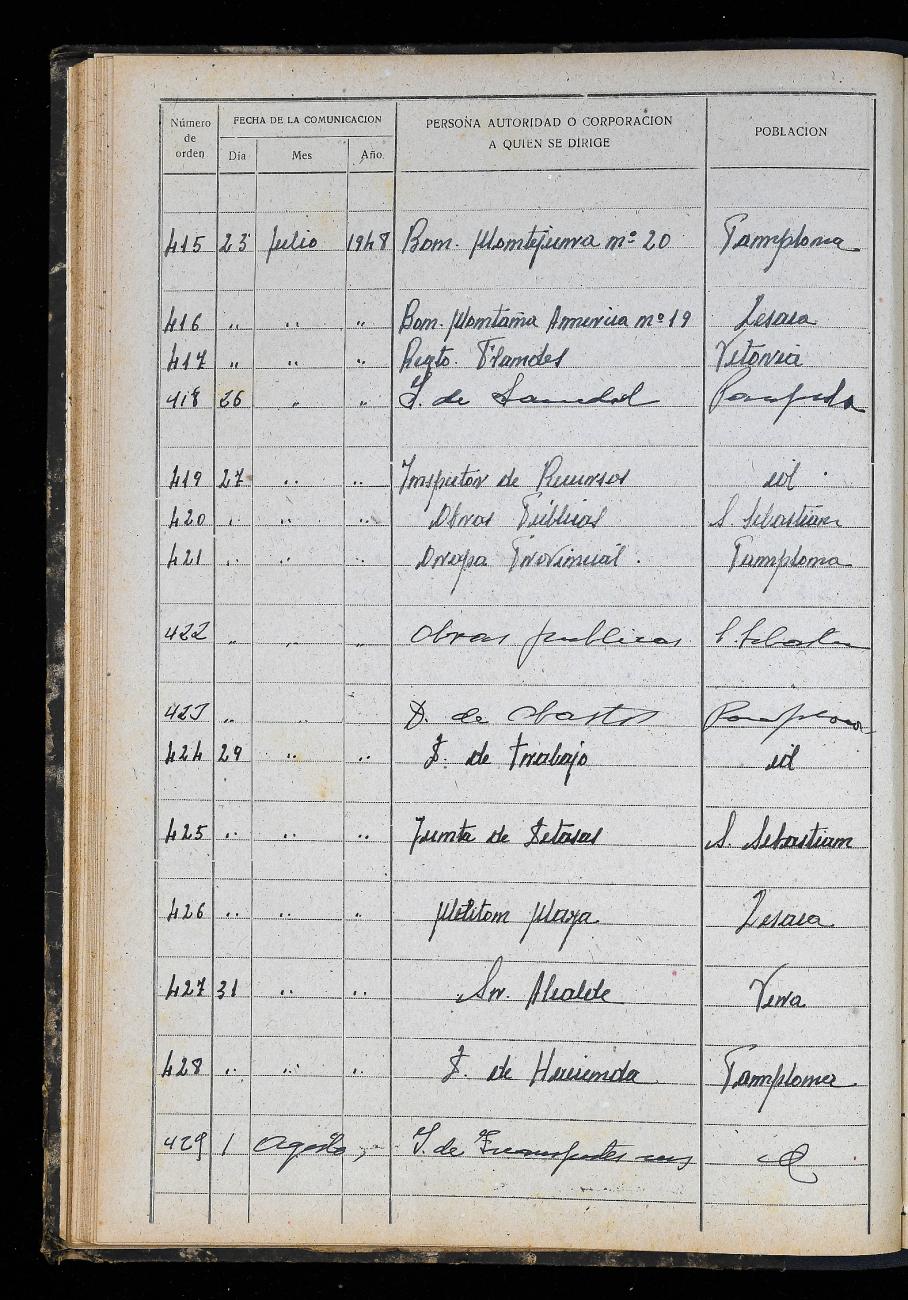 Número de orden
FECHA DE LA COMUNICACION
Día Mes Año
PERSONA AUTORIDAD O CORPORACION
A QUIEN SE DIRIGE
POBLACION
415 23 Julio 1948 Bon. Montejurra nº 20 Pamplona
416 " " " Bon. Montaña America nº 19 Lesaca
417 " " " Regto. Flandes Vitoria
418 26 " " J. de Sanidad Pamplona
419 27 " " Inspector de Recursos id
420 " " " Obras Públicas S. Sebastian
421 " " " Provincial. Pamplona
422 " " " Obras publicas S. Sebastian
423 " " D. de Abastos Pamplona
424 29 " " D. de trabajo id
425 " " " Junta de Detasas S. Sebastian
426 " " " Meliton Plaza Lesaca
427 31 " " Sr. Alcalde Vera
428 " " " D. de Hacienda Pamplona
429 1 Agosto " J. de Transportes